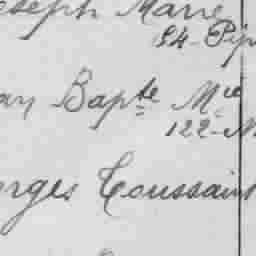 oseph Marie
24-Pip
an Bapte Mie
122-M
orges Toussaint